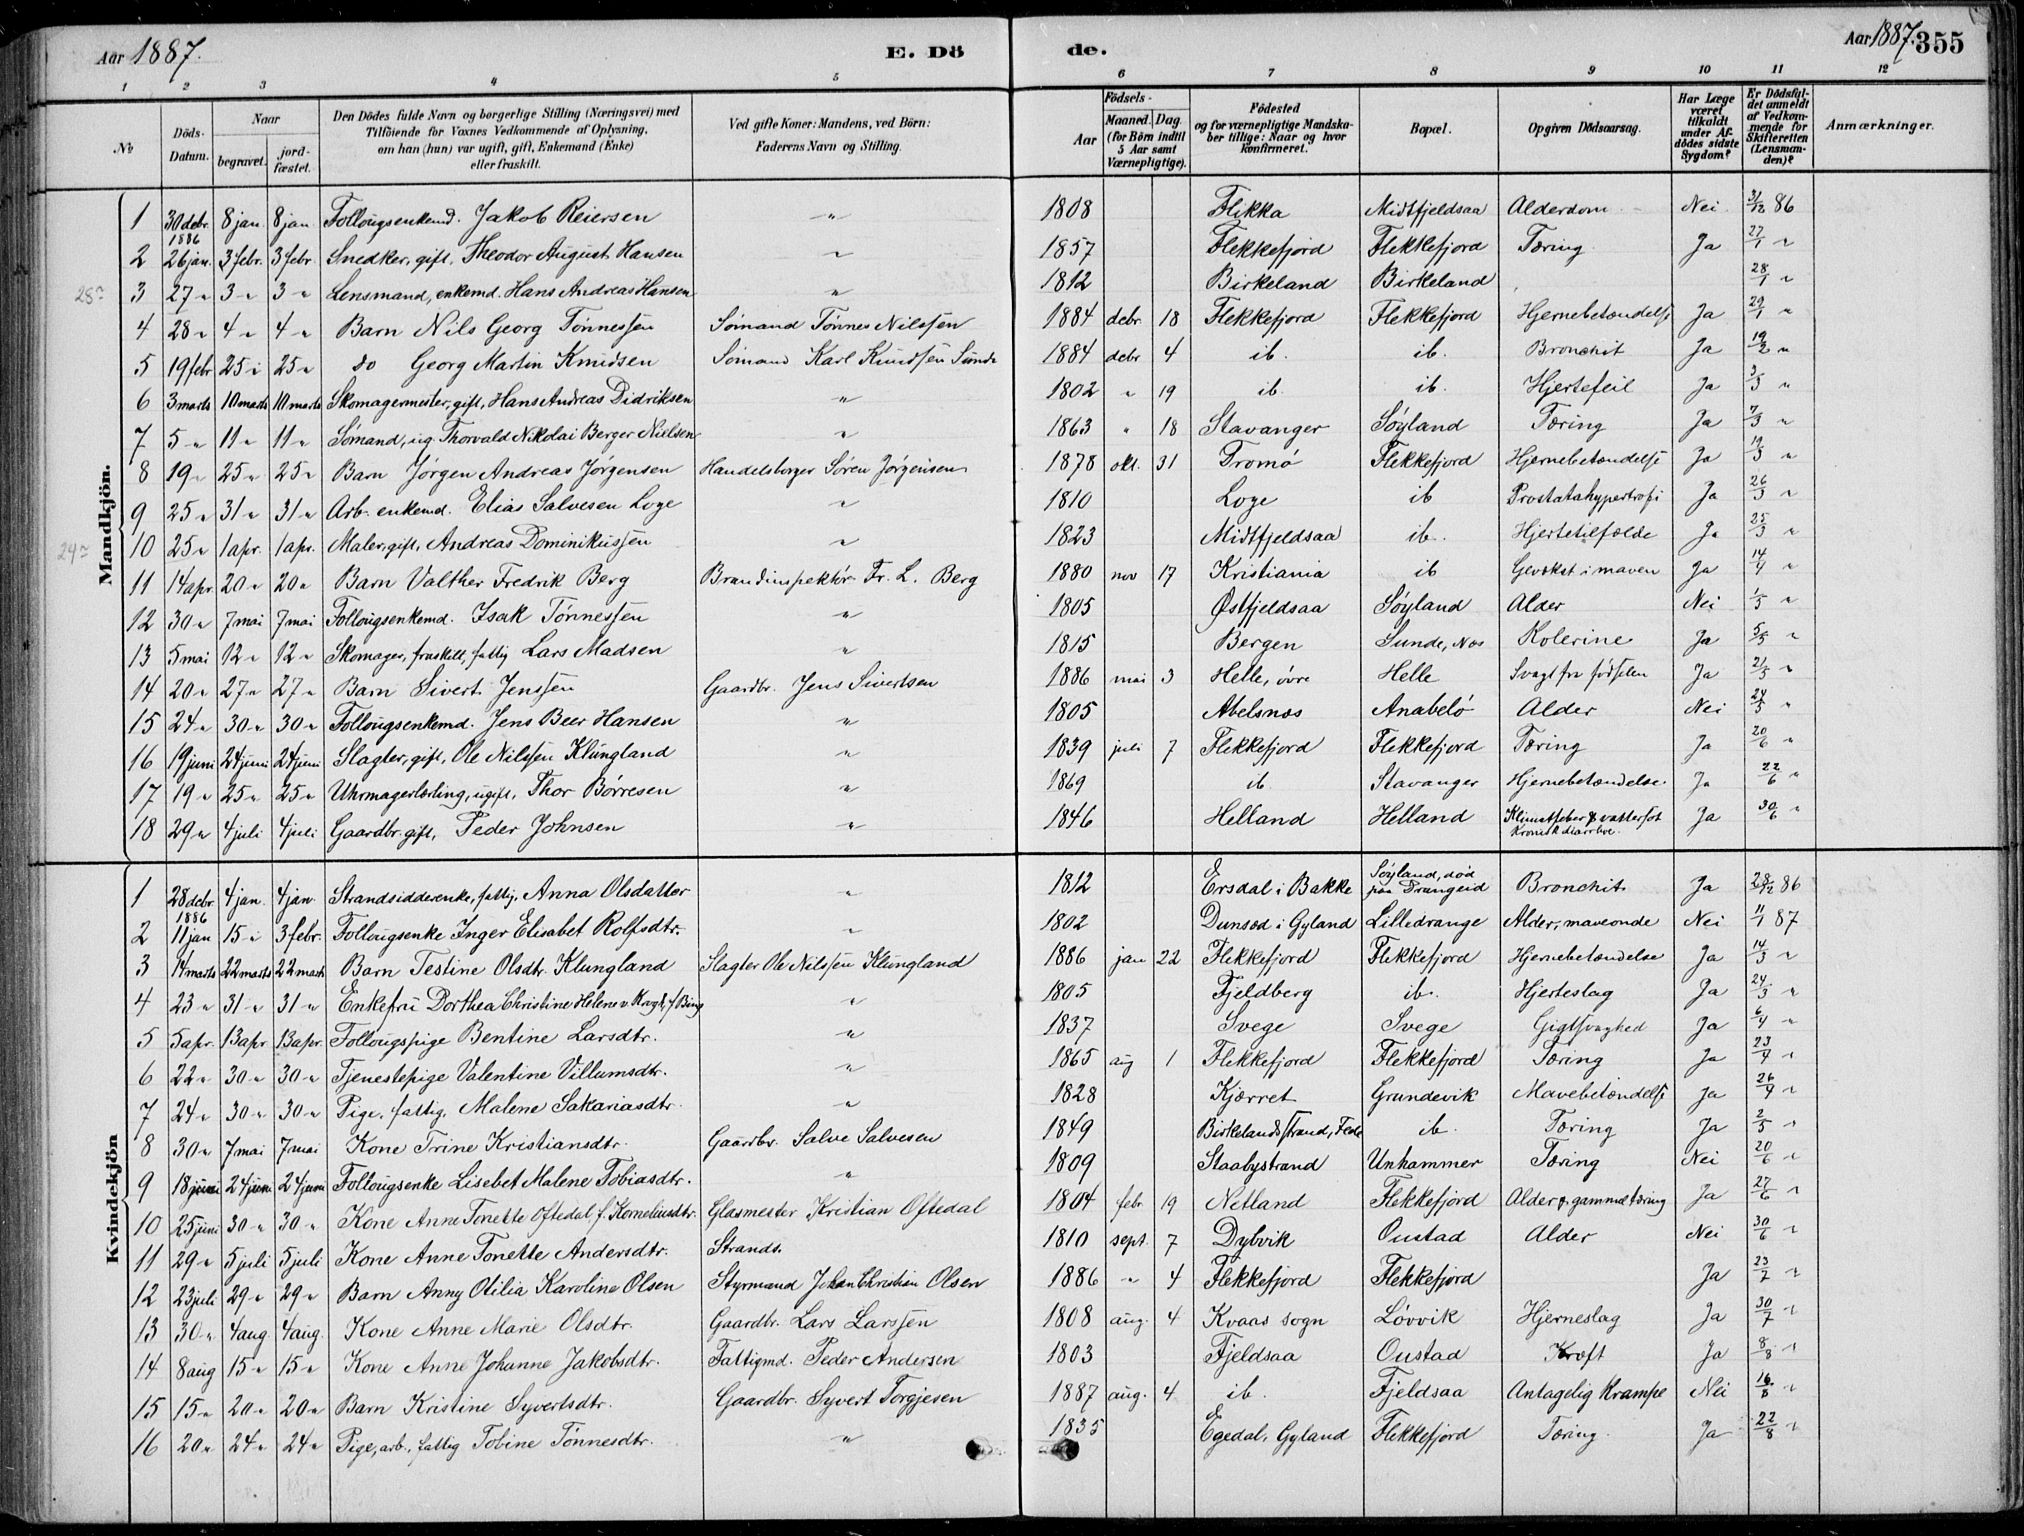 Aar 1887. E. Dö de. Aar 1887. 355
1 2 3 4 5 6 7 8 9 10 11 12
№ Döds-Datum. Naar begravet. jord-fæstet. Den Dödes fulde Navn og borgerlige Stilling (Næringsvei) med Tilföiende for Voxnes Vedkommende af Oplysning, om han (hun) var ugift, gift, Enkemand (Enke) eller fraskilt. Ved gifte Koner: Mandens, ved Börn: Faderens Navn og Stilling. Födsels- Aar Maaned. Dag. (for Börn indtil 5 Aar samt Værnepligtige). Födested og for værnepligtige Mandskaber tillige: Naar og hvor konfirmeret. Bopæl. Opgiven Dödsaarsag. Har Læge været tilkaldt under Afdödes sidste Sygdom? Er Dödsfaldet anmeldt af Vedkommende for Skifteretten (Lensmanden)? Anmærkninger.
Mandkjön.
1 30 debr. 1886 8 jan. 8 jan. Follougsenkemd. Jakob Reiersen " 1808 Flikka Midtfjeldsaa Alderdom Nei 31/12 86
2 26 jan. 3 febr. 3 febr. Snedker, gift, Theodor August Hansen " 1857 Flekkefjord Flekkefjord Tæring Ja 27/1 "
28 3 27 " 3 " 3 " Lensmand, enkemd. Hans Andreas Hansen " 1812 Birkeland Birkeland 28/1 "
4 28 " 4 " 4 " Barn Nils Georg Tønnessen Sømand Tønnes Nilssen 1884 debr. 18 Flekkefjord Flekkefjord Hjernebetændelse Ja 29/1 "
5 19 febr 25 " 25 " do Georg Martin Knudsen Sømand Karl Knudsen Sunde 1884 debr 4 ib. ib. Bronchit Ja 19/2 "
6 3 marts 10 marts 10 marts Skomagermester, gift, Hans Andreas Didriksen " 1802 " 19 ib. ib. Hjertefeil Ja 3/3 "
7 5 " 11 " 11 " Sømand, ug. Thorvald Nikolai Berger Nielsen " 1863 " 18 Stavanger Søyland Tæring Ja 7/3 "
8 19 " 25 " 25 " Barn Jørgen Andreas Jørgensen Handelsborger Sören Jørgensen 1878 okt. 31 Tromø Flekkefjord Hjernebetændelse Ja 19/3 "
9 25 " 31 " 31 " Arb. enkemd. Elias Salvesen Loge " 1810 Loge ib Prostatahypertrofi Ja 26/3 "
24 10 25 " 1 apr. 1 apr. Maler, gift, Andreas Dominikussen " 1823 Midtfjeldsaa ib. Hjertetilfælde Ja 25/3 "
11 14 apr 20 " 20 " Barn Valther Fredrik Berg Brandinspektør Fr. L. Berg 1880 nov 17 Kristiania ib Gevækst i maven Ja 14/4 "
12 30 " 7 mai 7 mai Follougsenkemd. Isak Tønnessen " 1805 Østfjeldsaa Søyland Alder Nei 1/5 "
13 5 mai 12 " 12 " Skomager, fraskilt, fattig Lars Madsen " 1815 Bergen Sunde, Nes Kolerine Ja 5/5 "
14 20 " 27 " 27 " Barn Sivert Jenssen Gaardbr. Jens Sivertsen 1886 mai 3 Helle, øvre Helle Svagt fra fødselen Ja 21/5 "
15 24 " 30 " 30 " Follougsenkemd. Jens Beer Hansen " 1805 Abelsnæs Anabelø Alder Nei 24/5 "
16 19 juni 24 juni 24 juni Slagter, gift, Ole Nilssen Klungland " 1839 juli 7 Flekkefjord Flekkefjord Tæring Ja 20/6 "
17 19 " 25 " 25 " Uhrmagerlærling, ugift, Thor Børresen " 1869 ib Stavanger Hjernebetændelse Ja 22/6 "
18 29 " 4 juli 4 juli Gaardbr. gift, Peder Johnsen " 1846 Helland Helland Klimatfeber & vattersot Kronisk diarrhoe. Ja 30/6 "
Kvindekjön
1 28 debr. 1886 4 jan. 4 jan. Strandsidderenke, fattig, Anna Olsdatter " 1812 Ersdal i Bakke Søyland, død paa Drangeid Bronchit Ja 28/12 86
2 11 jan 15 " 3 febr. Follougsenke Inger Elisabet Rolfsdtr. " 1802 Dunsæd i Gyland Lilledrange Alder, maveonde Nei 11/1 87
3 14 marts 22 marts 22 marts Barn Testine Olsdtr. Klungland Slagter Ole Nilssen Klungland 1886 jan 22 Flekkefjord Flekkefjord Hjernebetændelse Ja 14/3 "
4 23 " 31 " 31 " Enkefru Dorthea Christine Helene v. Krogh, f Bing " 1805 Fjeldberg ib. Hjerteslag Ja 24/3 "
5 5 apr. 13 apr 13 apr. Follougspige Bentine Larsdtr. " 1837 Svege Svege Gigtsvaghed Ja 6/4 "
6 22 " 30 " 30 " Tjenestepige Valentine Villumsdtr. " 1865 aug 1 Flekkefjord Flekkefjord Tæring Ja 23/4 "
7 24 " 30 " 30 " Pige, fattig, Malene Sakariasdtr. " 1828 Kjærret Grundevik Mavebetændelse Ja 26/4 "
8 30 " 7 mai 7 mai Kone Trine Kristiansdtr. Gaardbr. Salve Salvesen 1849 Birkelandsstrand, Fede ib. Tæring Ja 2/5 "
9 18 juni 24 juni 24 juni Follougsenke Lisebet Malene Tobiasdtr. " 1809 Staabystrand Unhammer Tæring Nei 20/6 "
10 25 juni 30 " 30 " Kone Anne Tonette Oftedal, f. Korneliusdtr. Glasmester Kristian Oftedal 1804 febr 19 Netland Flekkefjord Alder & gammel tæring Ja 27/6 "
11 29 " 5 juli 5 juli Kone Anne Tonette Andersdtr. Strands. 1810 sept. 7 Dybvik Oustad Alder Nei 30/6 "
12 23 juli 29 " 29 " Barn Anny Otilia Karoline Olsen Styrmand Johan Christian Olsen 1886 " 4 Flekkefjord Flekkefjord Ja 23/7 "
13 30 " 4 aug. 4 aug. Kone Anne Marie Olsdtr. Gaardbr. Lars Larssen 1808 aug. 4 Kvaas sogn Løvvik Hjerneslag Ja 30/7 "
14 8 aug 15 " 15 " Kone Anne Johanne Jakobsdtr. Fattigmd. Peder Andersen 1803 Fjeldsaa Oustad Kræft Ja 8/8 "
15 15 " 20 " 20 " Barn Kristine Syvertsdtr. Gaardbr. Syvert Torgjesen 1887 aug. 4 ib. Fjeldsaa Antagelig Krampe Nei 16/8 "
16 20 " 24 " 24 " Pige, arb., fattig Tobine Tønnesdtr. " 1835 Egedal, Gyland Flekkefjord Tæring Ja 22/8 "